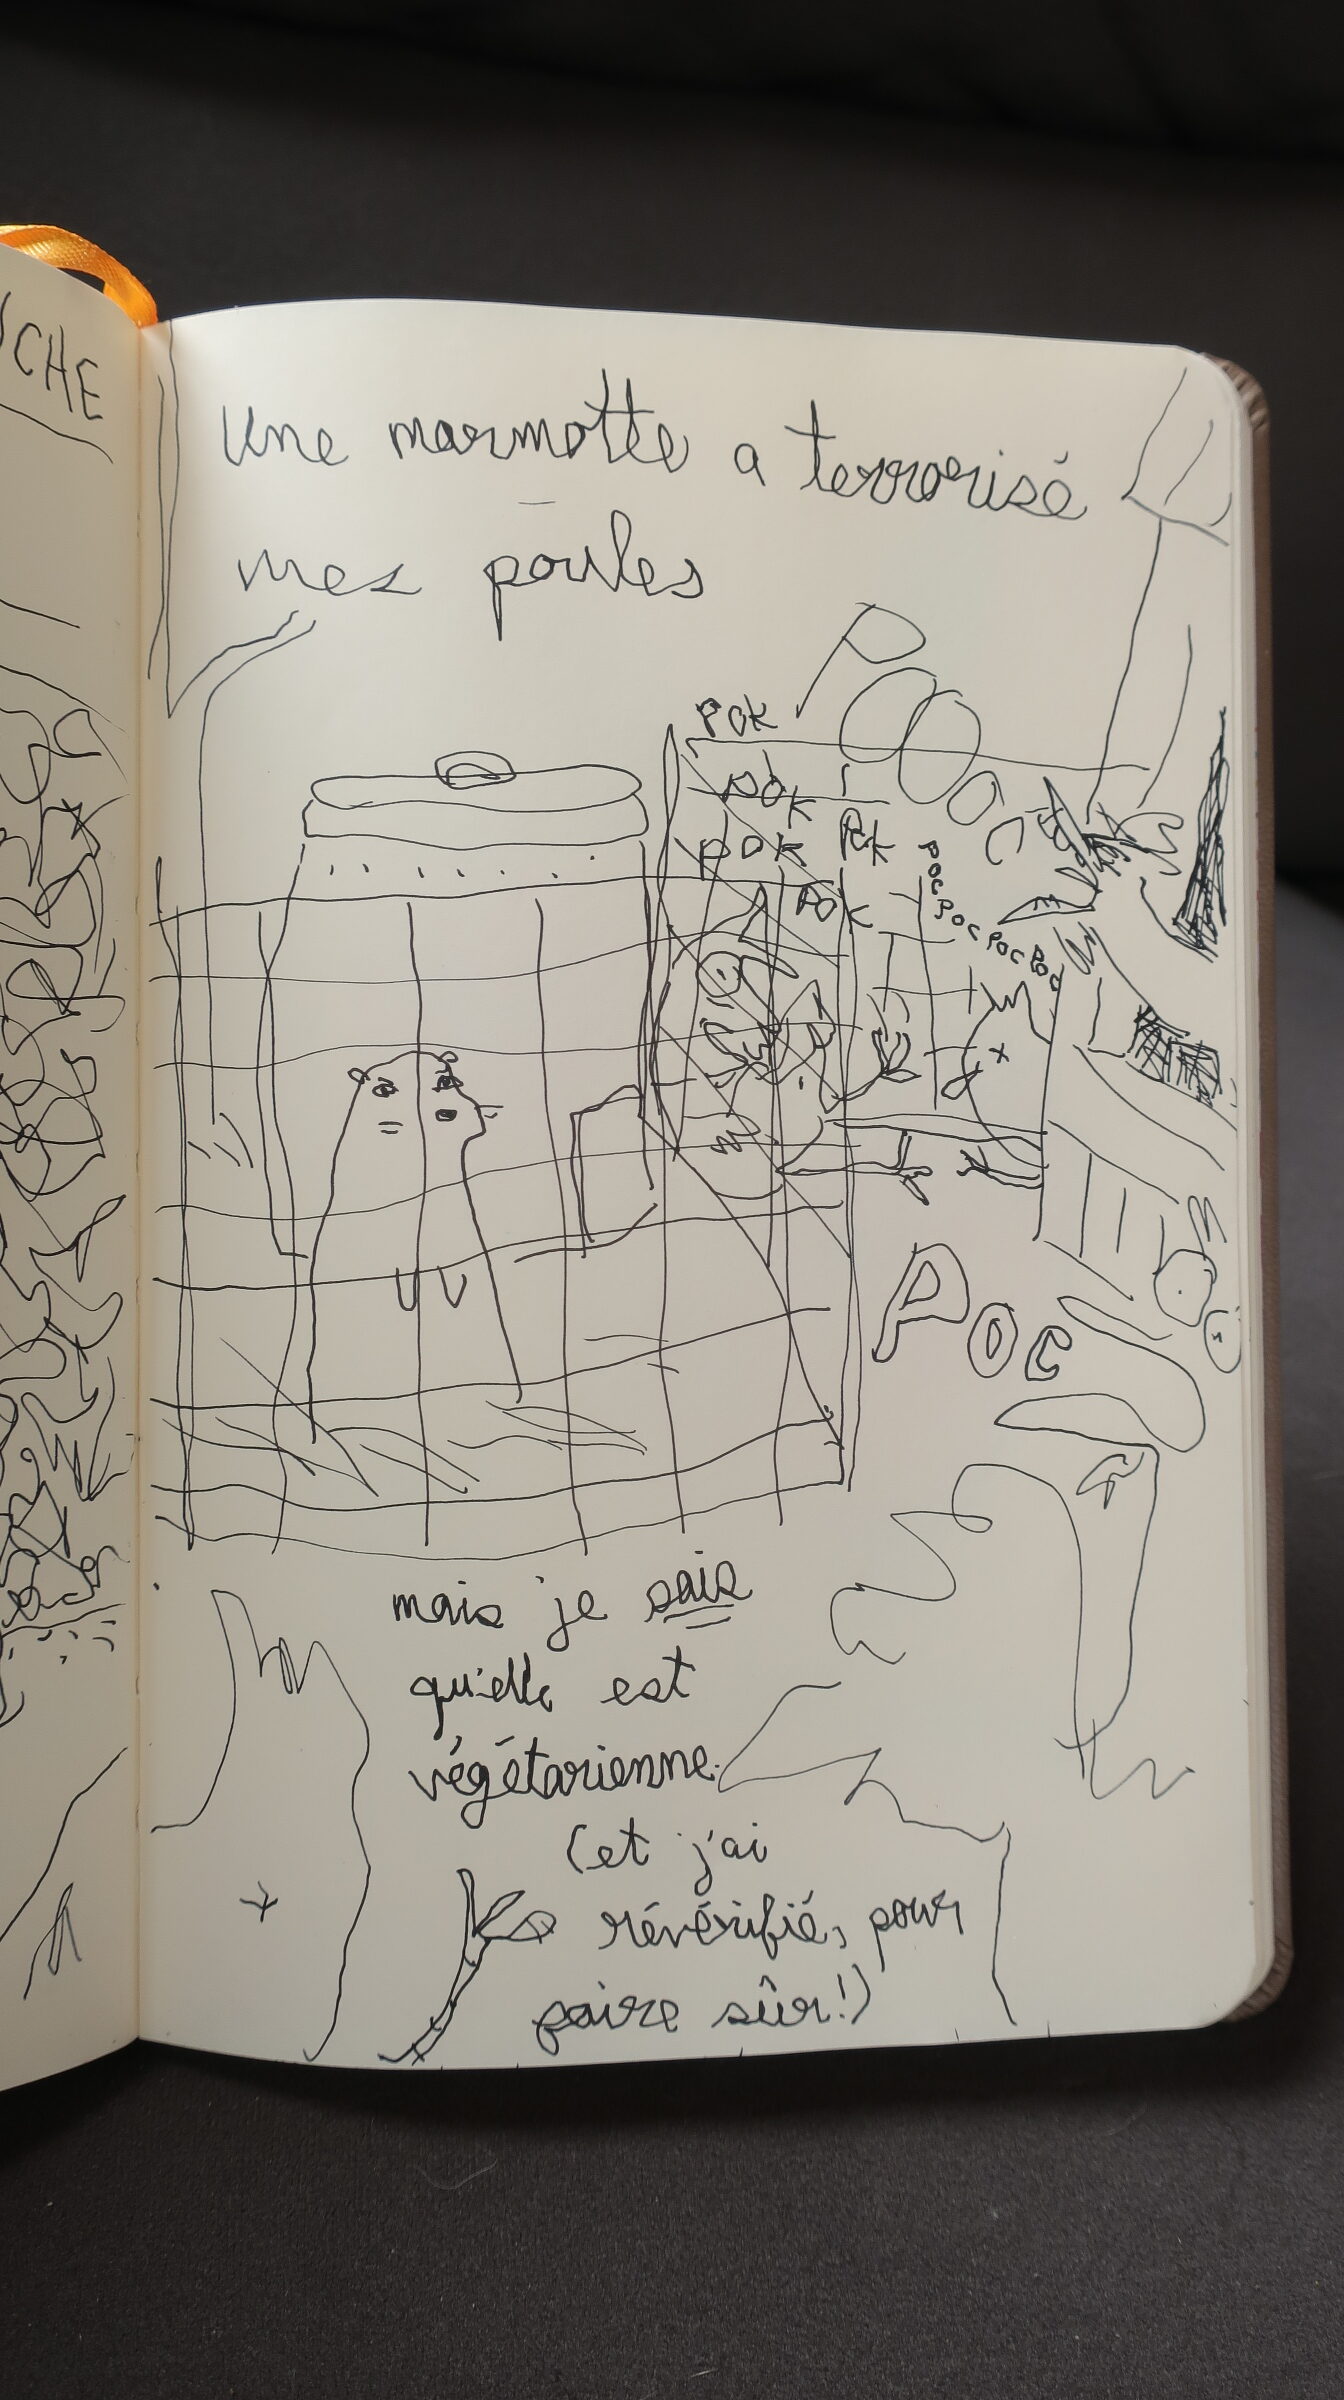 CHE
Une marmotte a terrorisé
mes poules
POOOC
POK
POK
POK POK
POK
POCPOCPOCPOC
POC
mais je sais
qu'elle est
végétarienne.
(et j'ai
révérifié, pour
faire sûr!)